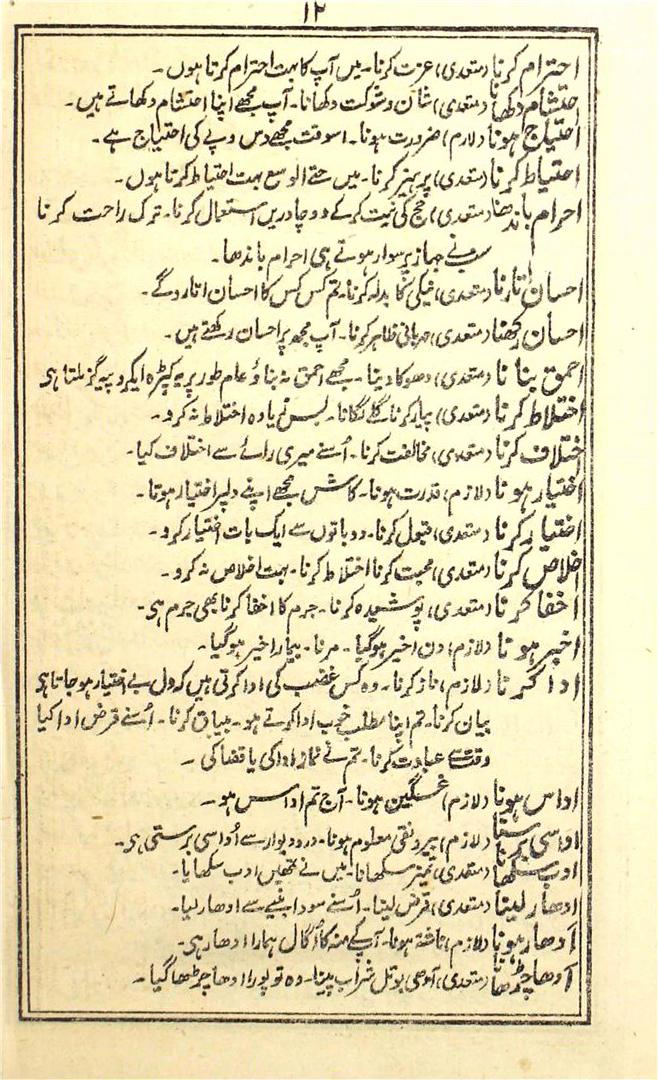 ۱۲
احترام کرنا (متعدی) عزت کرنا۔ میں آپ کا بہت احترام کرتا ہوں۔
احتشام دکھانا (متعدی) شان و شوکت دکھانا۔ آپ مجھے اپنا احتشام دکھاتے ہیں۔
احتیاج ہونا (لازم) ضرورت ہونا۔ اسوقت مجھے دس روپے کی احتیاج ہے۔
احتیاط کرنا (متعدی) پرہیز کرنا۔ میں حتے الوسع بہت احتیاط کرتا ہوں۔
احرام باندھنا (متعدی) حج کی نیت کر کے دو چادریں استعمال کرنا۔ ترک راحت کرنا
سب نے جہاز پر سوار ہوتے ہی احرام باندھا۔
احسان اتارنا (متعدی) نیکی کا بدلہ کرنا۔ تم کس کس کا احسان اتارو گے۔
احسان رکھنا (متعدی) مہربانی ظاہر کرنا۔ آپ مجھ پر احسان رکھتے ہیں۔
احمق بنانا (متعدی) دھوکا دینا۔ مجھے احمق نہ بناؤ عام طور پر یہ کپڑہ ایکروپیہ گز ملتا ہی
اختلاط کرنا (متعدی) پیار کرنا گلے لگانا۔ بس زیادہ اختلاط نہ کرو۔
اختلاف کرنا (متعدی) مخالفت کرنا۔ اُسنے میری رائے سے اختلاف کیا۔
اختیار ہونا (لازم) قدرت ہونا۔ کاش مجھے اپنے دلپر اختیار ہوتا۔
اختیار کرنا (متعدی) قبول کرنا۔ دو باتوں سے ایک بات اختیار کرو۔
اخلاص کرنا (متعدی) محبت کرنا اختلاط کرنا۔ بہت اخلاص نہ کرو۔
اخفا کرنا (متعدی) پوشیدہ کرنا۔ جرم کا اخفا کرنا بھی جرم ہی۔
اخیر ہونا (لازم) دن اخیر ہوگیا۔ مرنا۔ بیمار اخیر ہوگیا۔
ادا کرنا (لازم) ناز کرنا۔ وہ کس غضب کی ادا کرتی ہیں کہ دل بے اختیار ہو جاتا ہی
بیان کرنا۔ تم اپنا مطلب خوب ادا کرتے ہو۔ بیباق کرنا۔ اُسنے قرض ادا کیا
وقت سے عبادت کرنا۔ تم نے نماز ادا کی یا قضا کی۔
اداس ہونا (لازم) غمگین ہونا۔ آج تم اداس ہو۔
اداسی برسنا (لازم) بیرونقی معلوم ہونا۔ در و دیوار سے اُداسی برستی ہی۔
ادب سکھانا (متعدی) تمیز سکھانا۔ میں نے تمھیں ادب سکھایا۔
ادھار لینا (متعدی) قرض لینا۔ اُسنے سودا بنیے سے ادھار لیا۔
اَدھار ہونا (لازم) ناشتہ ہونا۔ آپکے منہ کا اُگال ہمارا ادھار ہی۔
اَدھا چڑھانا (متعدی) آدھی بوتل شراب پینا۔ وہ تو پورا ادھا چڑھا گیا۔